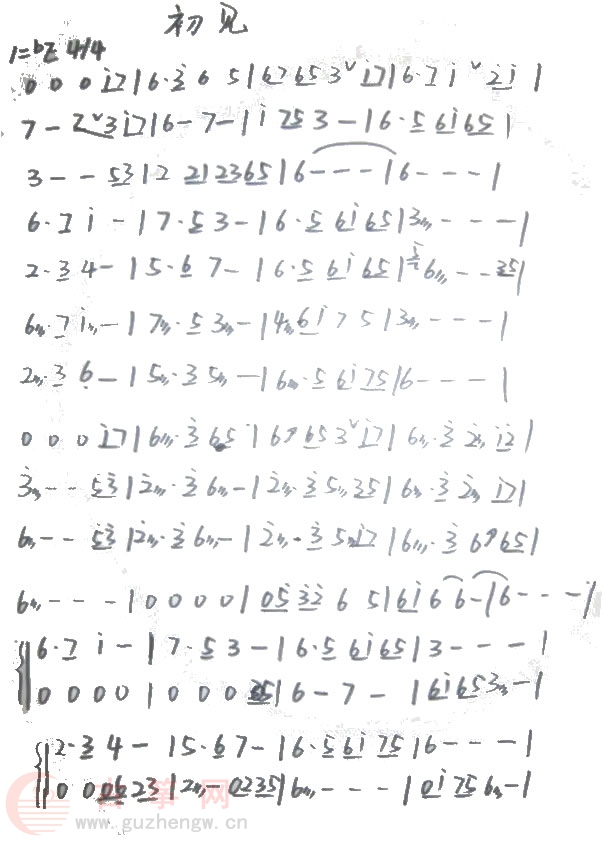 初见
1=bE 4/4
0 0 0 i7 | 6· 3 6 5 | 67 65 3 ˅ i7 | 6· 7 i ˅ 2i |
7 - 7 ˅ 3 i7 | 6 - 7 - | i 75 3 - | 6· 5 6i 65 |
3 - - 53 | 2 21 23 65 | 6 - - - | 6 - - - |
6· 7 i - | 7· 5 3 - | 6· 5 6i 65 | 3 - - - |
2· 3 4 - | 5· 6 7 - | 6· 5 6i 65 | 6 - - 35 |
6· 7 i - | 7· 5 3 - | 4 6i 7 5 | 3 - - - |
2· 3 6 - | 5· 3 5 - | 6· 5 6i 75 | 6 - - - |
0 0 0 i7 | 6· 3 65 | 6 65 3 ˅ i7 | 6· 3 2 i2 |
3 - - 53 | 2· 3 6 - | 2· 3 5 35 | 6· 3 2 i7 |
6 - - 53 | 2· 3 6 - | 2· 3 5 i7 | 6· 3 6 65 |
6 - - - | 0 0 0 0 | 05 32 6 5 | 6i 6 6 - | 6 - - - |
6· 7 i - | 7· 5 3 - | 6· 5 6i 65 | 3 - - - |
0 0 0 0 | 0 0 0 35 | 6 - 7 - | 6i 65 3 - |
2· 3 4 - | 5· 6 7 - | 6· 5 6i 75 | 6 - - - |
0 0 06 23 | 2 - 02 35 | 6 - - - | 0i 75 6 - |
古筝网
www.guzhengw.cn